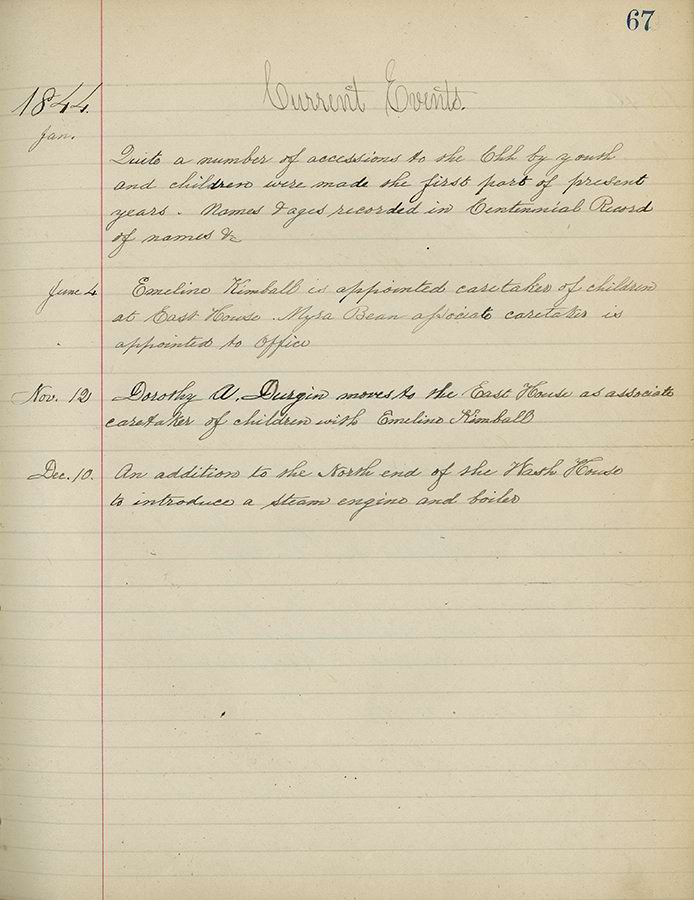 67
Current Events.
1844.
Jan.
Quite a number of accessions to the Chh by youth
and children were made the first part of present
years. Names & ages recorded in Centennial Record
of names &c
June 4 Emeline Kimball is appointed caretaker of children
at East House. Myra Bean associate caretaker is
appointed to Office
Nov. 12 Dorothy A. Durgin moves to the East House as associate
caretaker of children with Emeline Kimball
Dec. 10. An addition to the North end of the Wash House
to introduce a steam engine and boiler